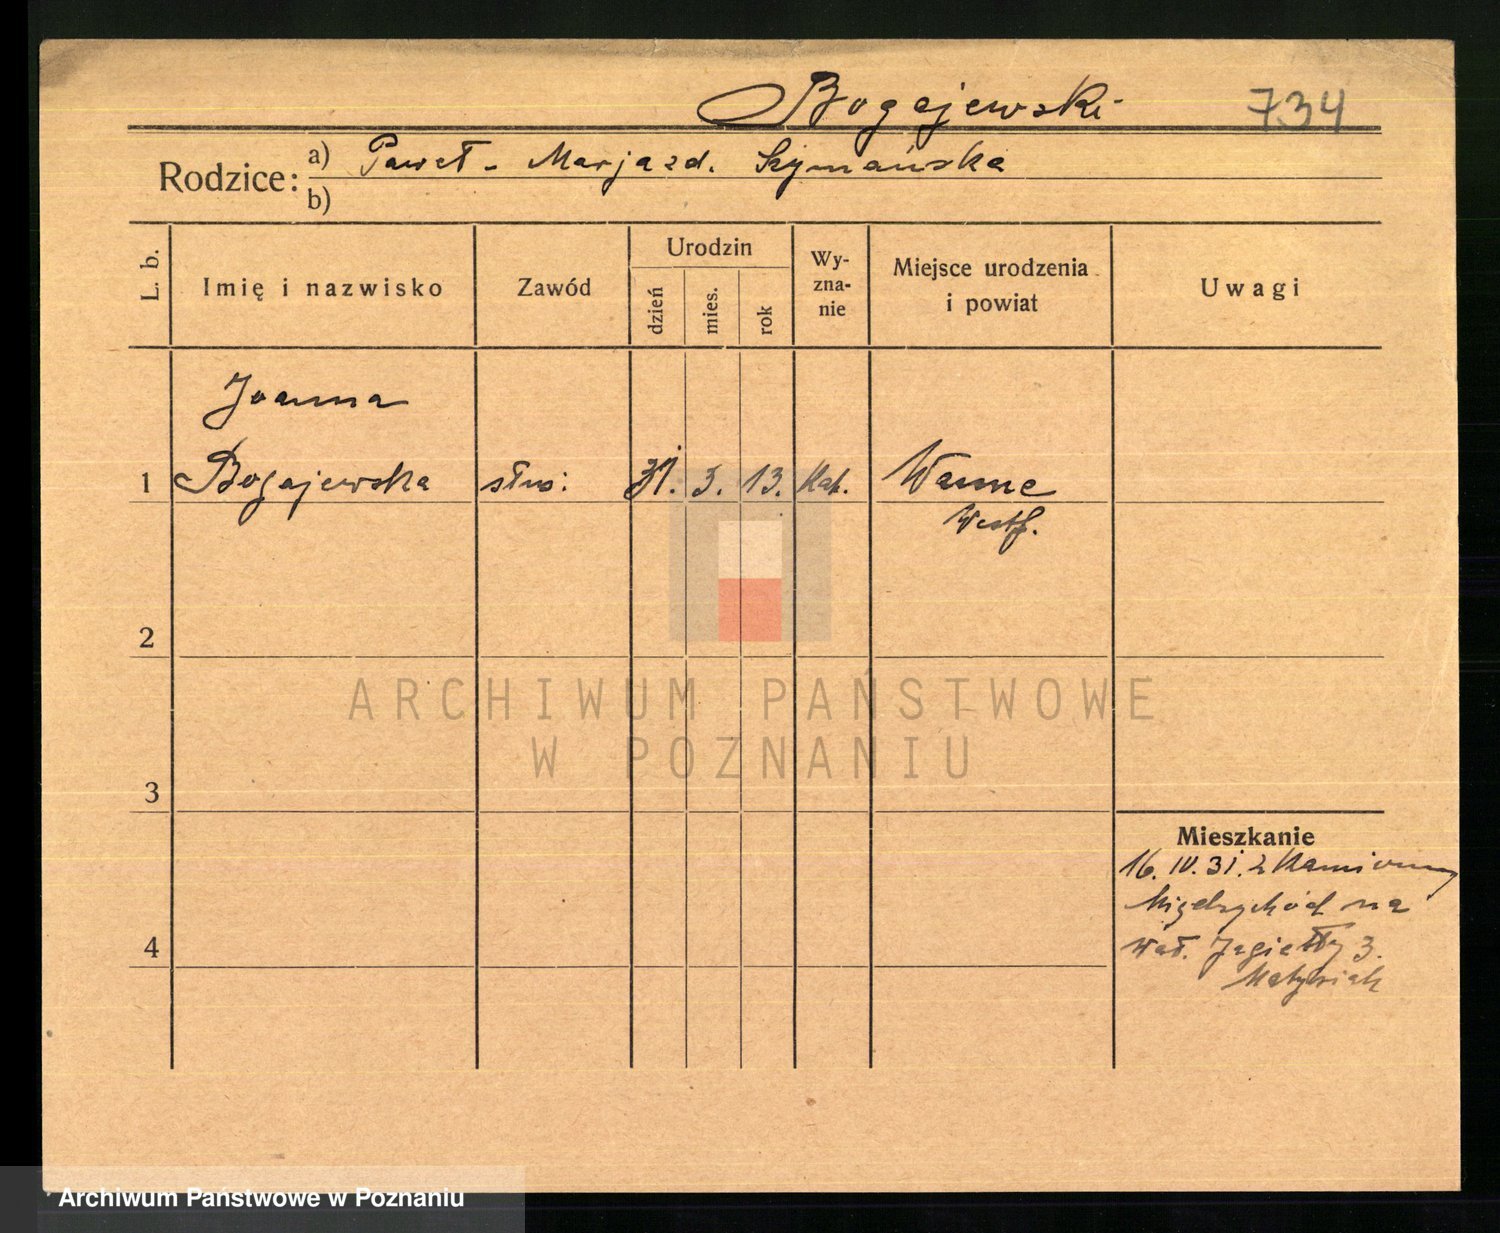 Bogajewski 734
Rodzice: a) Paweł - Marja zd. Szymańska
b)
L. b. Imię i nazwisko Zawód Urodzin dzień mies. rok Wy-zna-nie Miejsce urodzenia i powiat Uwagi
Joanna
1 Bogajewska służ. 31. 3. 13. Kat. Wanne
Westf.
2
ARCHIWUM PAŃSTWOWE
W POZNANIU
3
Mieszkanie
16. IV. 31. z Kamionny
Międzychód na
4
wał. Jagiełły 3.
Matysiak
Archiwum Państwowe w Poznaniu